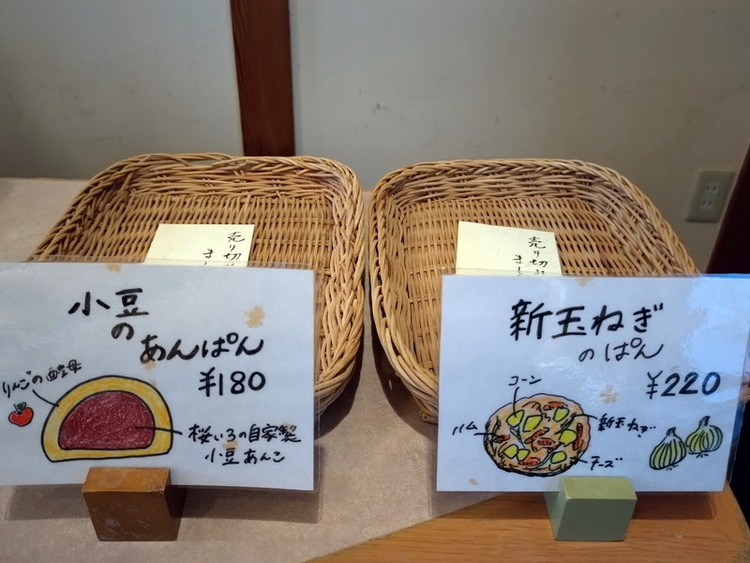 売り切れ
まし
小豆
の
あんぱん
¥180
りんごの酵母
桜いろの自家製
小豆あんこ
売り切れ
まし
新玉ねぎ
のぱん
¥220
コーン
ハム
新玉ねぎ
チーズ